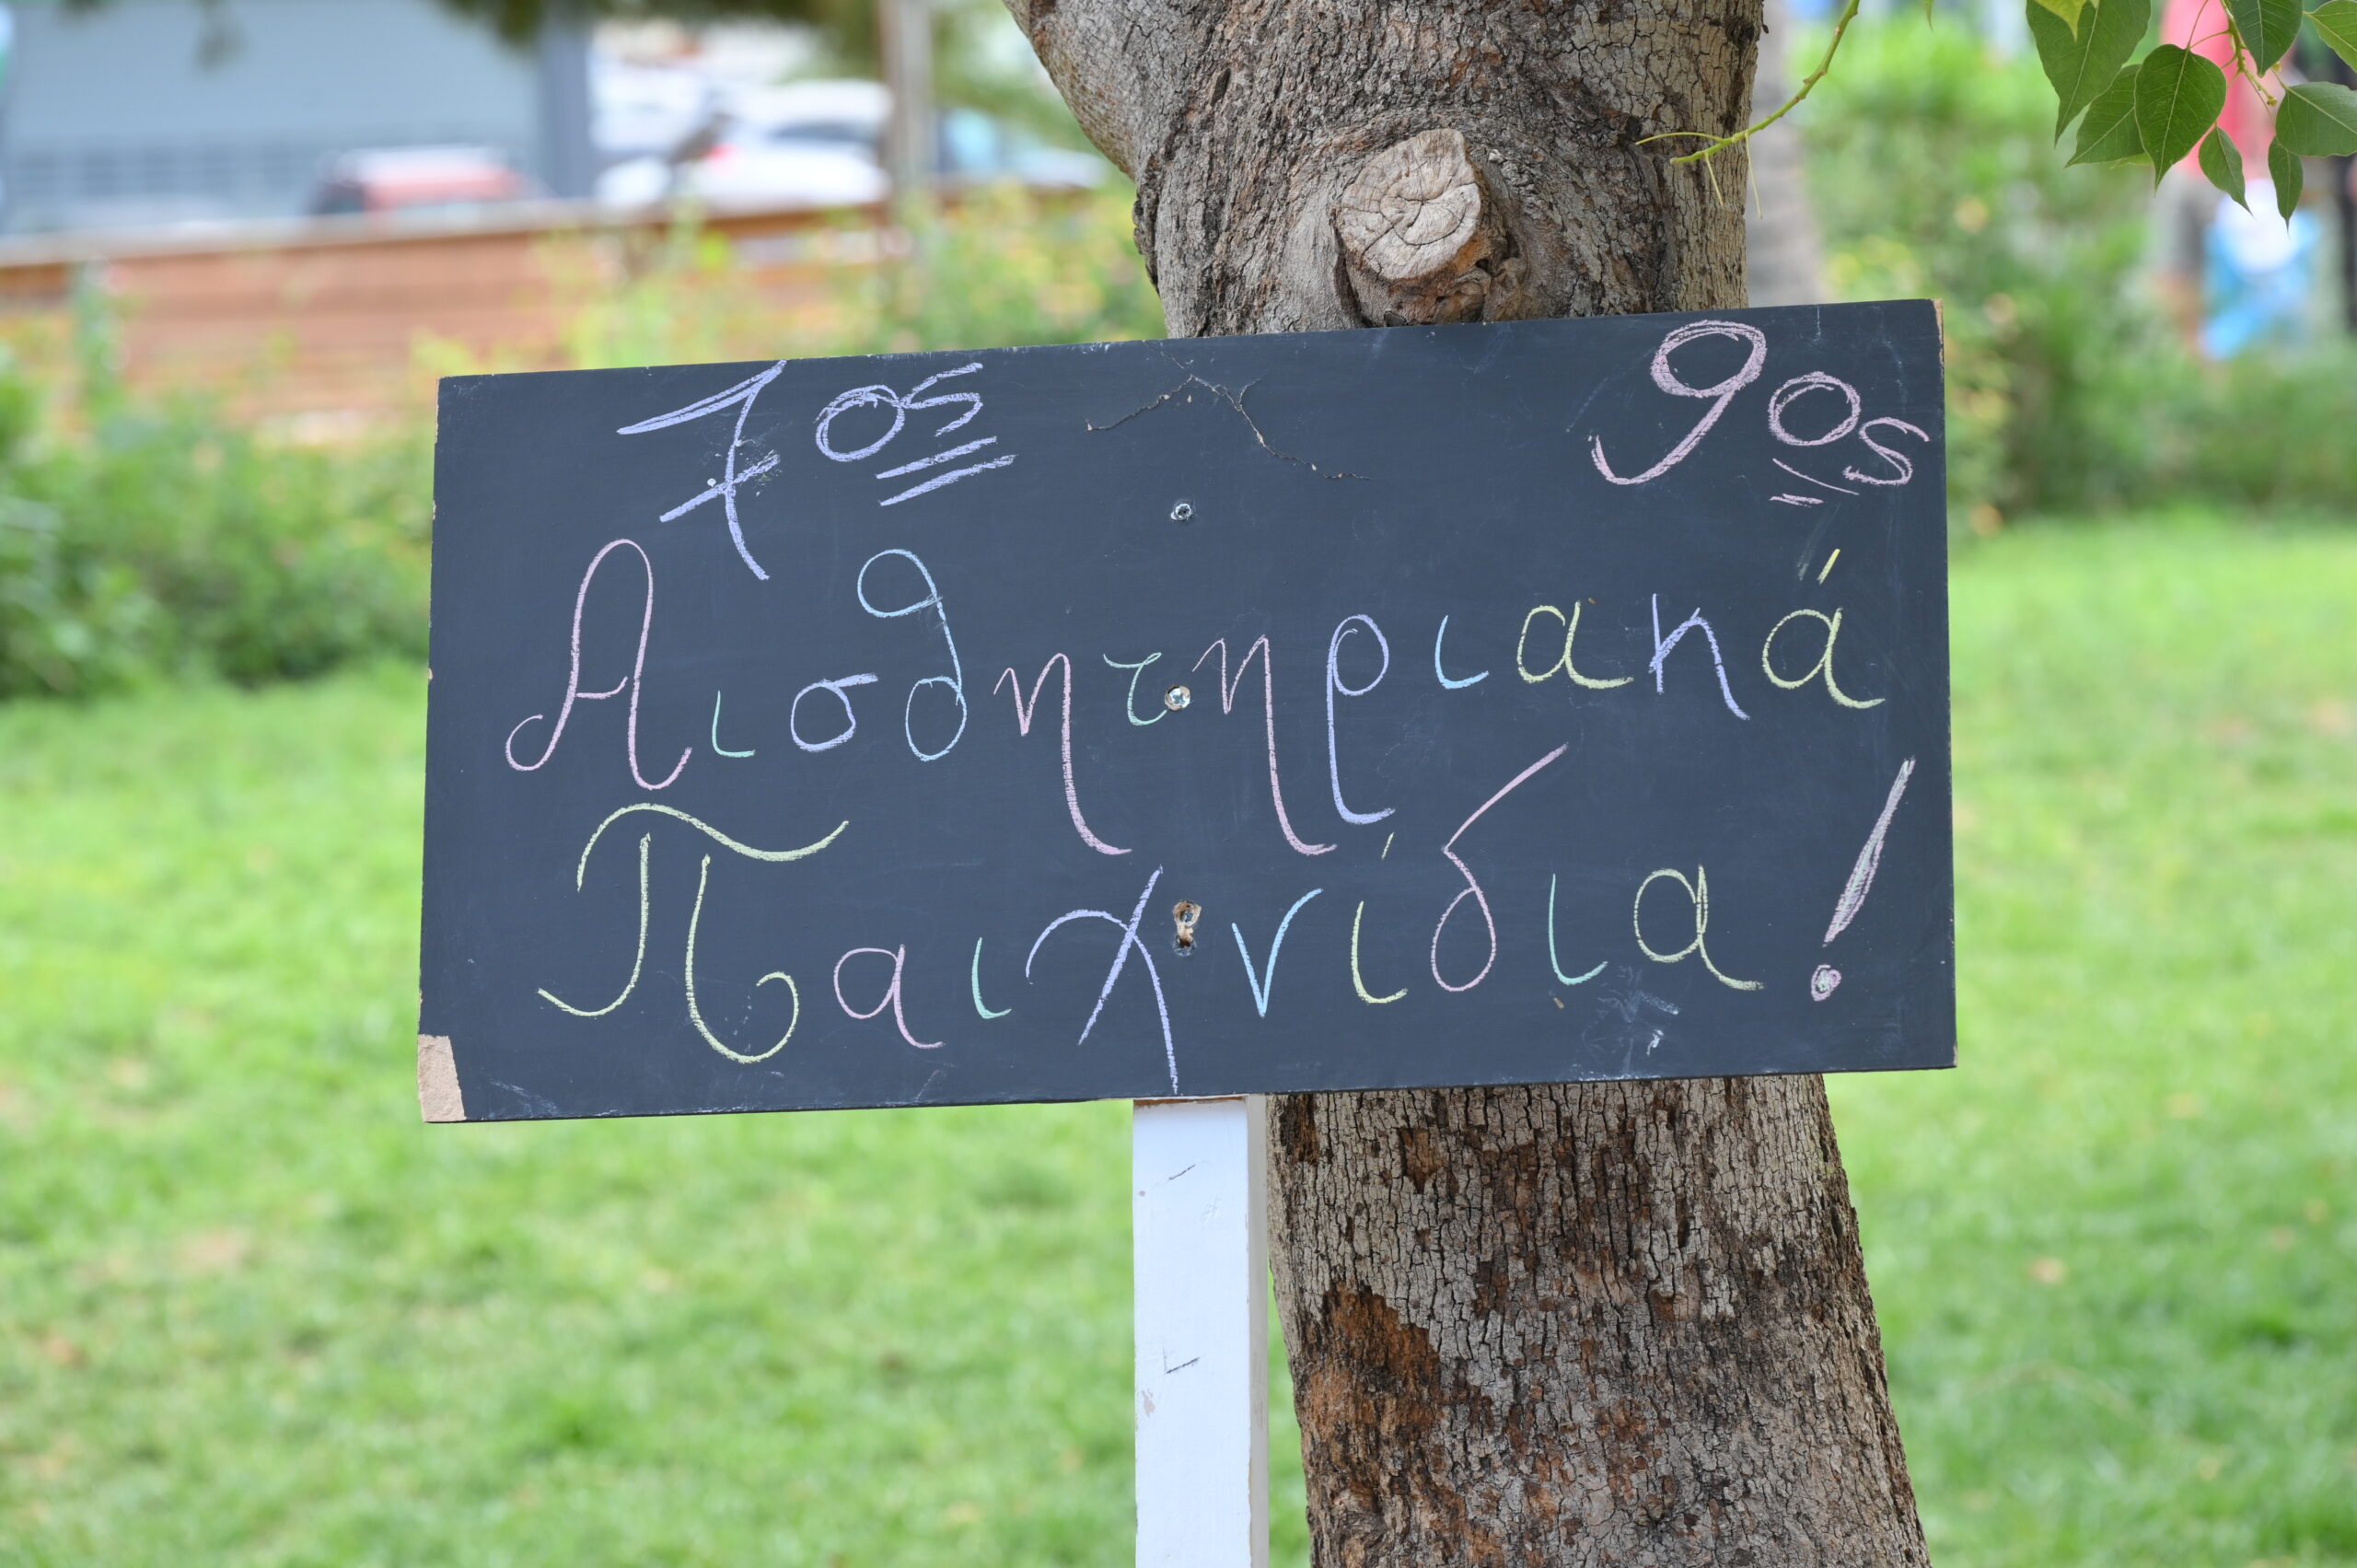 7ος 9ος
Αισθητηριακά
Παιχνίδια!